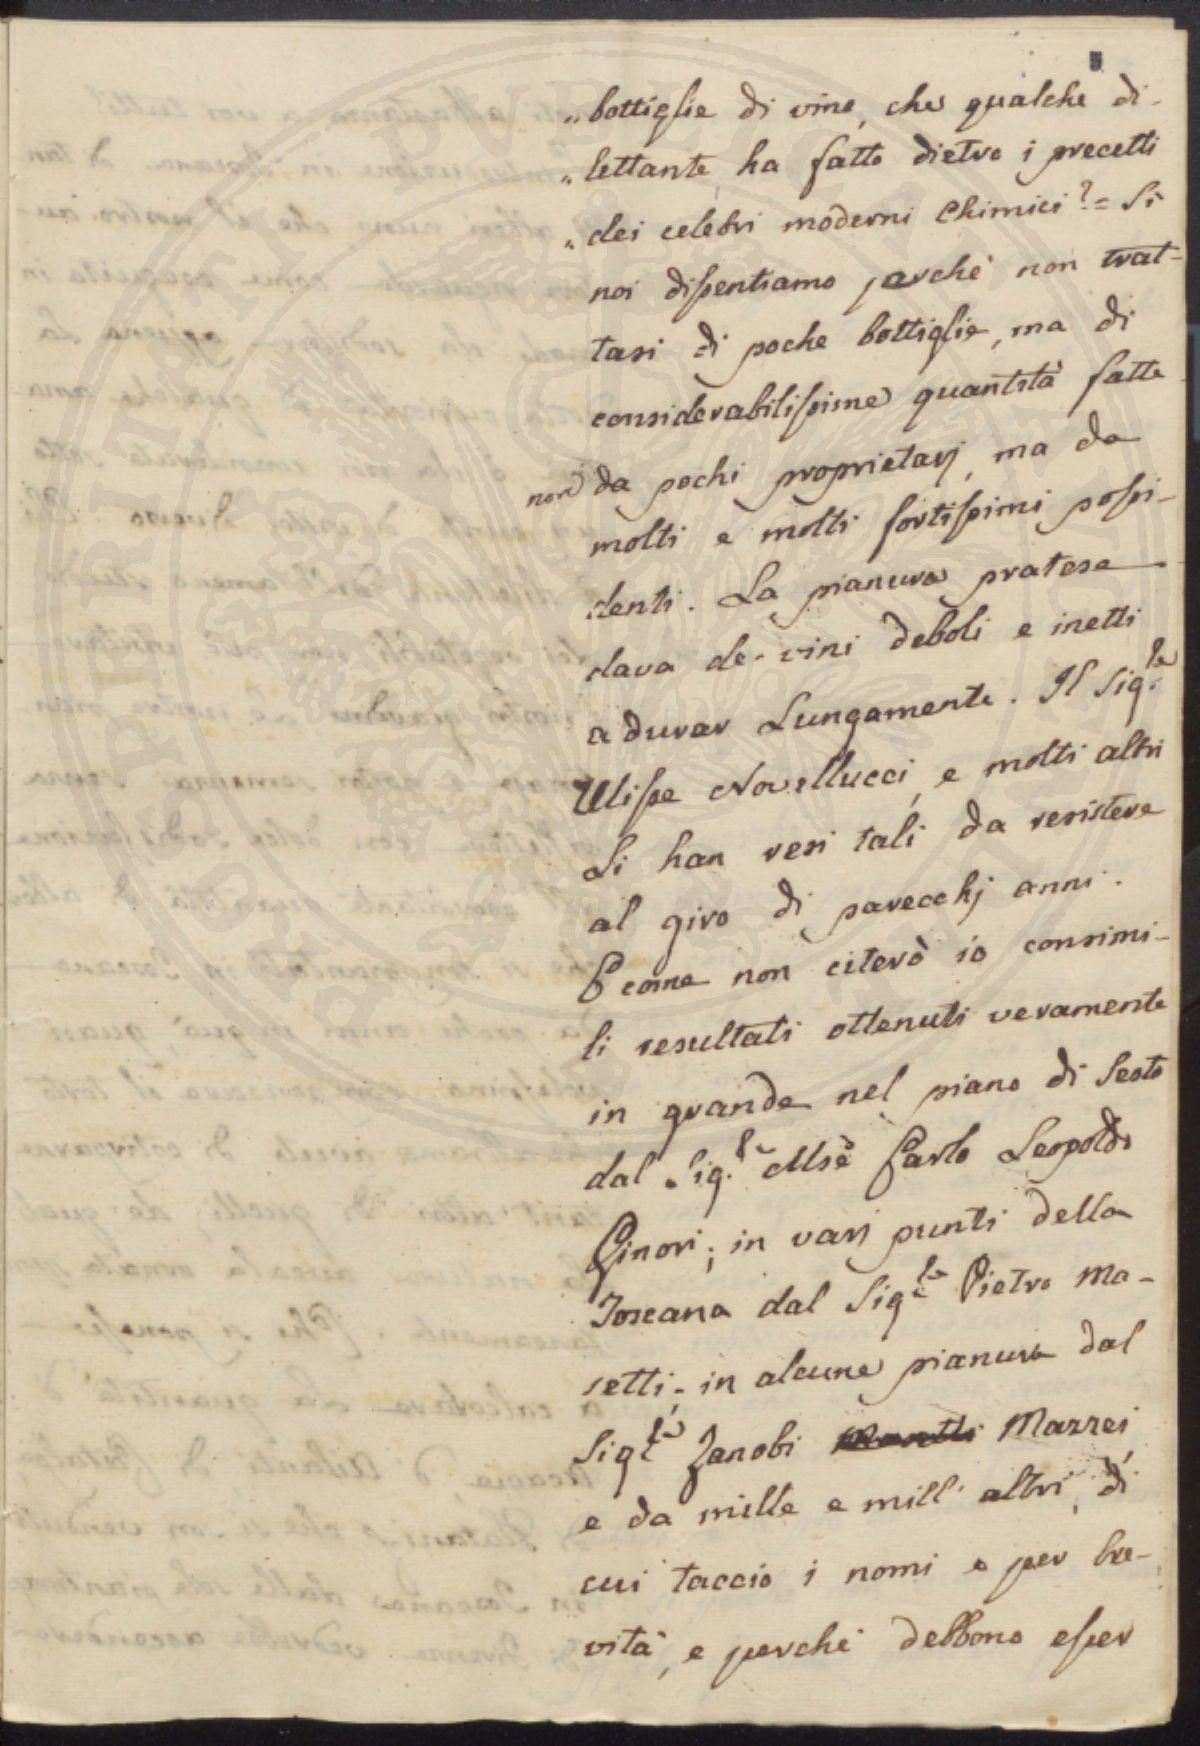 5
„bottiglie di vino, che qualche di-
„lettante ha fatto dietro i precetti
„dei celebri moderni Chimici?= Si
noi dissentiamo perchè non trat-
tasi di poche bottiglie, ma di
considerabilissime quantità fatte
non da pochi proprietarj, ma da
molti e molti fortissimi possi-
denti. La pianura pratese
dava de' vini deboli e inetti
a durar Lungamente. Il Sig.re
Ulisse Novellucci, e molti altri
Li han resi tali da resistere
al giro di parecchj anni.
E come non citerò io consimi-
li resultati ottenuti veramente
in grande nel piano di Sesto
dal Sig.re Mse Carlo Leopoldo
Ginori; in varj punti della
Toscana dal Sig.re Pietro Ma-
setti; in alcune pianure dal
Sig.re Zanobi Mazzei,
e da mille e mill' altri, di
cui taccio i nomi e per bre-
vità, e perchè debbono esser